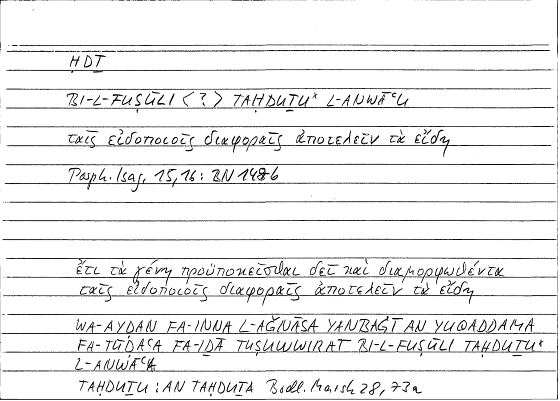 ḤDṮ
BI-L-FUṢŪLI <?> TAḤDUṮU* L-ANWĀʿU
ταῖς εἰδοποιοῖς διαφοραῖς ἀποτελεῖν τὰ εἴδη
Porph. Isag. 15,16: BN 148b
ἔτι τὰ γένη προϋποκεῖσθαι δεῖ καὶ διαμορφωθέντα
ταῖς εἰδοποιοῖς διαφοραῖς ἀποτελεῖν τὰ εἴδη
WA-AYḌAN FA-INNA L-AǦNĀSA YANBAĠĪ AN YUQADDAMA
FA-TŪḌAʿA FA-IḎĀ TUṢUWWIRAT BI-L-FUṢŪLI TAḤDUṮU*
L-ANWĀʿA
TAḤDUṮU : AN TAḤDUṮA Bodl. Marsh 28, 73a